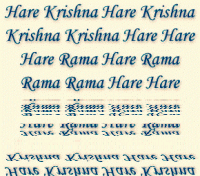 Hare Krishna Hare Krishna
Krishna Krishna Hare Hare
Hare Rama Hare Rama
Rama Rama Hare Hare